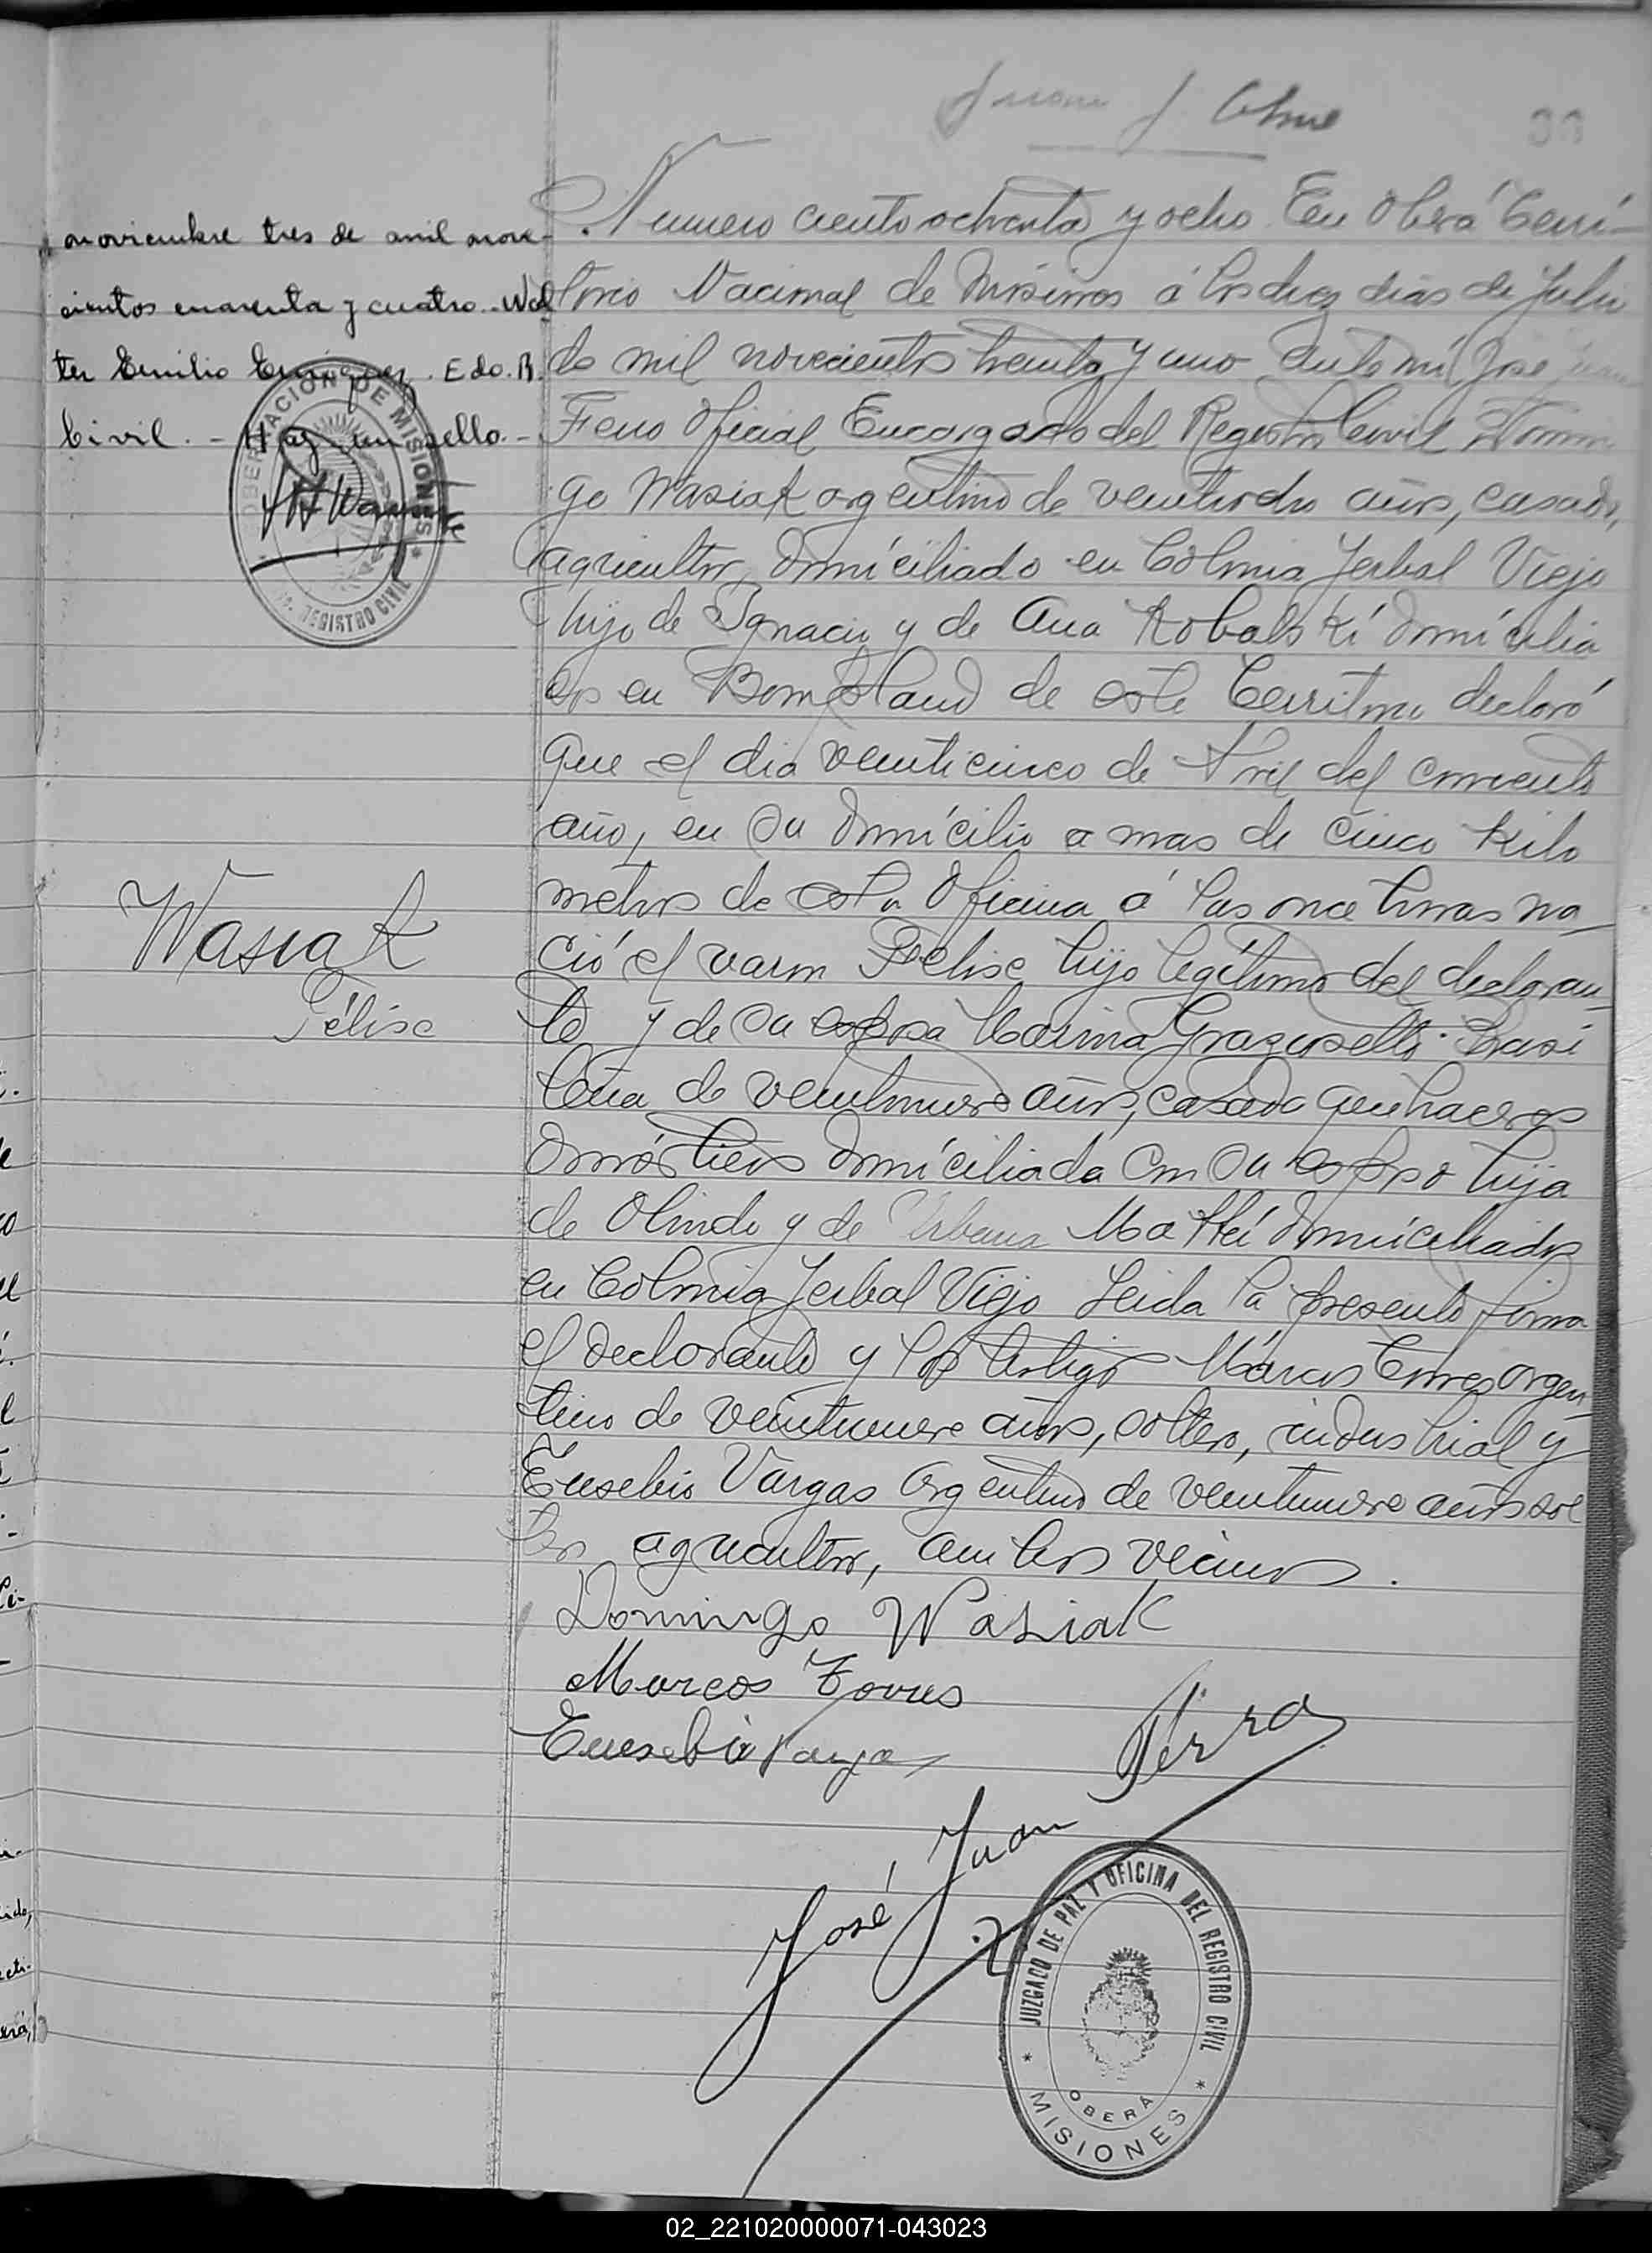 Numero ciento ochenta y ocho En Oberá Terri-
torio Nacional de Misiones á los diez dias de Julio
de mil novecientos treinta y uno ante mí José Juan
Oficial Encargado del Registro Civil Domin
go Wasiak argentino de años, casado,
agricultor, domiciliado en Colonia Yerbal Viejo
hijo de Ignacio y de Ana Kobalski domicilia
os en Bompland de este Territorio declaró
que el dia veinticinco de del corriente
año, en su domicilio a mas de cinco kilo
metros de esta Oficina á las once horas na-
ció el varon Felise hijo legítimo del declaran-
te y de su esposa brasi
leña de veintinueve años, casada quehaceres
domésticos domiciliada con su esposo hija
de Olindo y de Urbana Mattei domiciliados
en Colonia Yerbal Viejo Leida la presente firma
el declarante y los testigos Marcos Torres argen-
tino de veintinueve años, soltero, industrial y
Eusebio Vargas argentino de veintinueve años sol
tero agricultor, ambos vecinos.
Domingo Wasiak
Marcos Torres
Eusebio Vargas
José Juan
noviembre tres de mil nove-
cientos cuarenta y cuatro.-Wal
ter Emilio Enriquez. Edo. R.
Civil.- Hay un sello.-
GOBERNACION DE MISIONES
REGISTRO CIVIL
Wasiak
Félise
JUZGADO DE PAZ Y OFICINA DEL REGISTRO CIVIL
OBERÁ
* MISIONES *
02_221020000071-043023